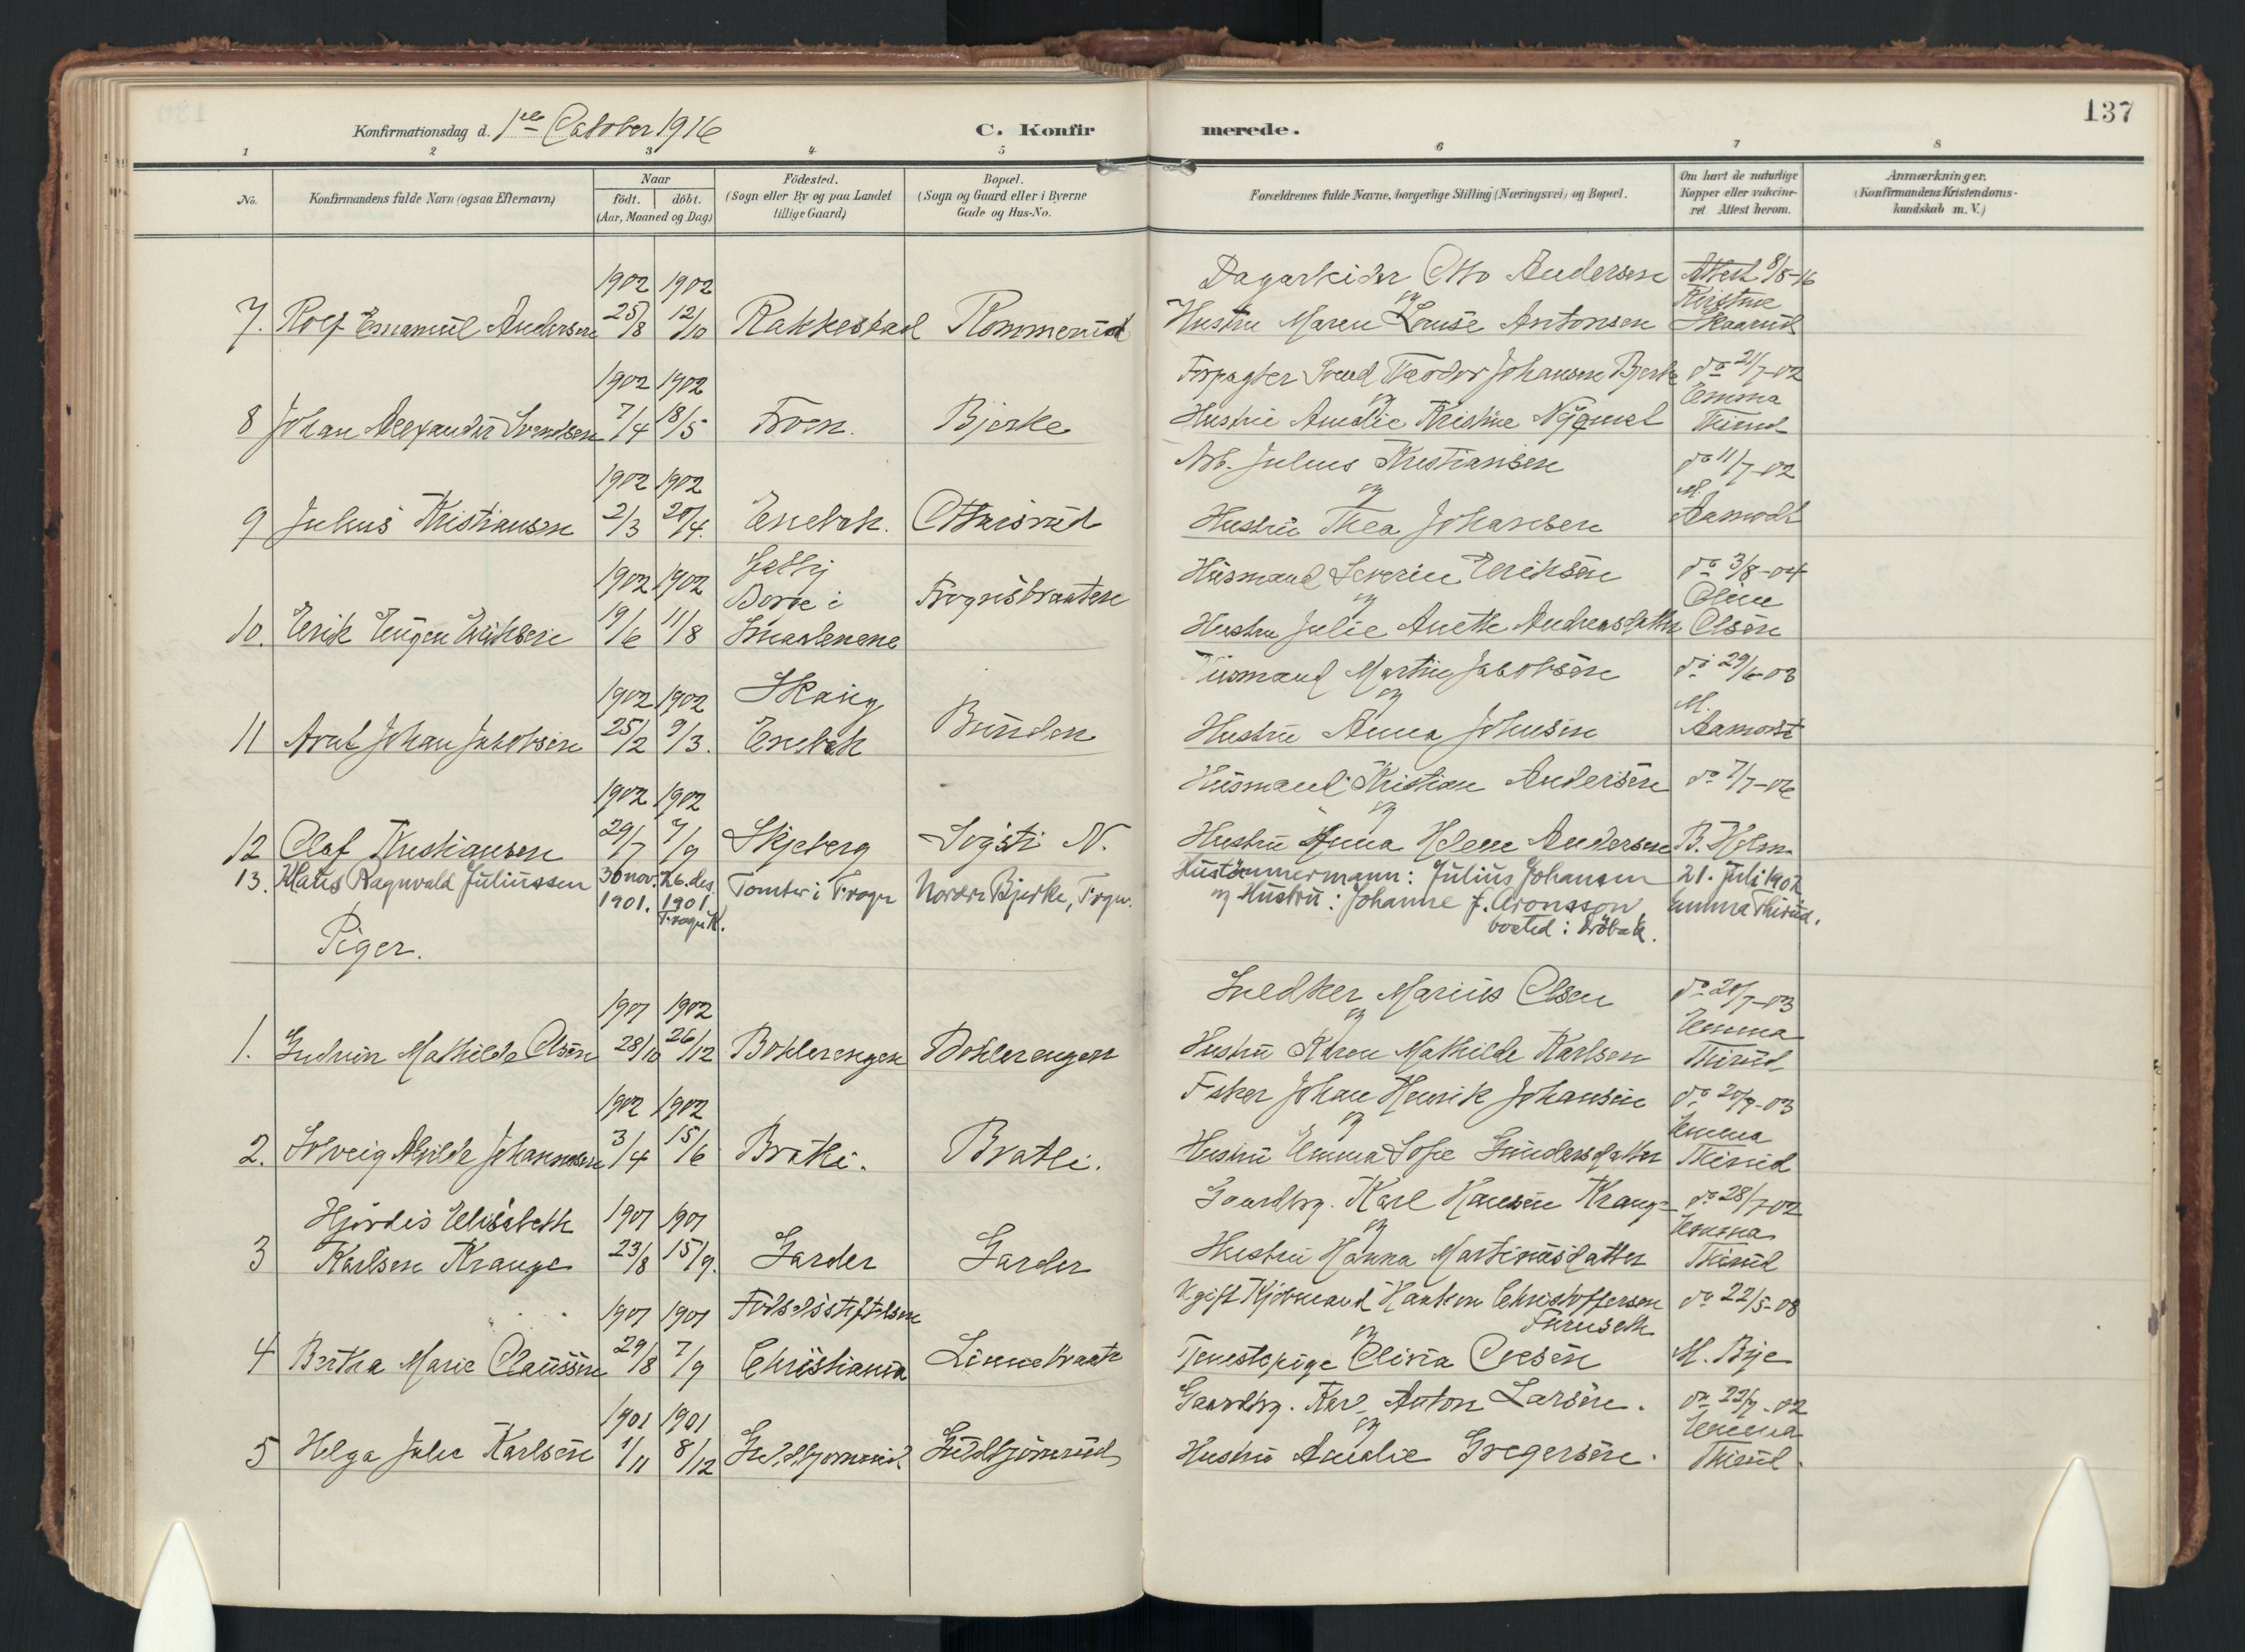 137
Konfirmationsdag d. 1ste October 1916
C. Konfirmerede.
1 2 3 4 5 6 7 8
No.
Konfirmandens fulde Navn (ogsaa Efternavn)
Naar
födt. döbt.
(Aar, Maaned og Dag)
Födested.
(Sogn eller By og paa Landet
tillige Gaard)
Bopæl.
(Sogn og Gaard eller i Byerne
Gade og Hus-No.
Forældrenes fulde Navne, borgerlige Stilling (Næringsvei) og Bopæl.
Om havt de naturlige
Kopper eller vakcine-
ret Attest herom.
Anmærkninger.
(Konfirmandens Kristendoms-
kundskab m. V.)
1902 1902 Dagarbeider Otto Andersen Attest 8/8-16
og Kirstine
7. Rolf Emanuel Andersen 25/8 12/10 Rakkestad Rommerud Hustru Maren Louise Antonsen Skaarud
1902 1902 Forpagter Svend Teodor Johansen Bjerke do 21/7-02
og Emma
8 Johan Alexander Svendsen 7/4 18/5 Froen. Bjerke Hustru Amalie Kristine Thirud
1902 1902 Arb. Julius Kristiansen do 11/7-02
og M.
9 Julius Kristiansen 2/3 20/4. Enebak. Ottarsrud Hustru Thea Johansen Aamodt
1902 1902 Husmand Severin Eriksen do 3/8-04
Borge i Frognsbraaten og Oline
10. Erik Eugen Eriksen 19/6 11/8 Smaalenene Hustru Julie Anette Andreasdatter Olsen
Husmand Martin Jakobsen do 29/6-03
1902 1902 Skaug og M.
11 Arnt Johan Jakobsen 25/2 9/3. Enebak Bunden Hustru Anna Johnsen Aamodt
1902 1902 Husmand Kristian Andersen do 7/7-06
og
12 Olaf Kristiansen 29/7 7/9 Skjeberg Sogsti N. Hustru Anna Helene Andersen B. Holm
13. Klaus Ragnvald Juliussen 30 nov. 26. des. Tomter i Frogn Nordre Bjerke, Frogn. Hustömmermann: Julius Johansen 21. Juli 1902
1901. 1901 og Hustru: Johanne f. Aronsson Emma Thirud.
Frogn K. bosted: Dröbak.
Piger.
1901 1902 Snedker Marius Olsen do 20/7-03
og Emma
1. Gudrun Mathilde Olsen 28/10 26/12 Bohlerengen Bohlerengen Hustru Karen Mathilde Karlsen Thirud
1902 1902 Fisker Johan Henrik Johansen do 20/7-03
og Emma
2. Solveig Alvilde Johannesen 3/4 15/6 Bråtli. Bratli. Hustru Emma Sofie Gundersdatter Thirud
Hjördis Elisabeth 1901 1901 Gaardbr. Karl Hansen Krange do 28/7-02
og Emma
3 Karlsen Krange 23/8 15/9. Garder Garder Hustru Hanna Martinusdatter Thirud
1901 1901 Födselsstiftelsen Ugift Kjöbmand Haakon Christoffersen do 22/5-08
Furuseth
4 Bertha Marie Claussen 29/8 7/9 Christiania Linnebraate og Tjenestepige Olivia Olesen M. Bye
1901 1901 Gaardbr. Karl Anton Larsen. do 22/7-02
og Emma
5 Helga Julie Karlsen 1/11 8/12 Guldbjörnrud. Guldbjörnrud Hustru Amalie Gregersen. Thirud.